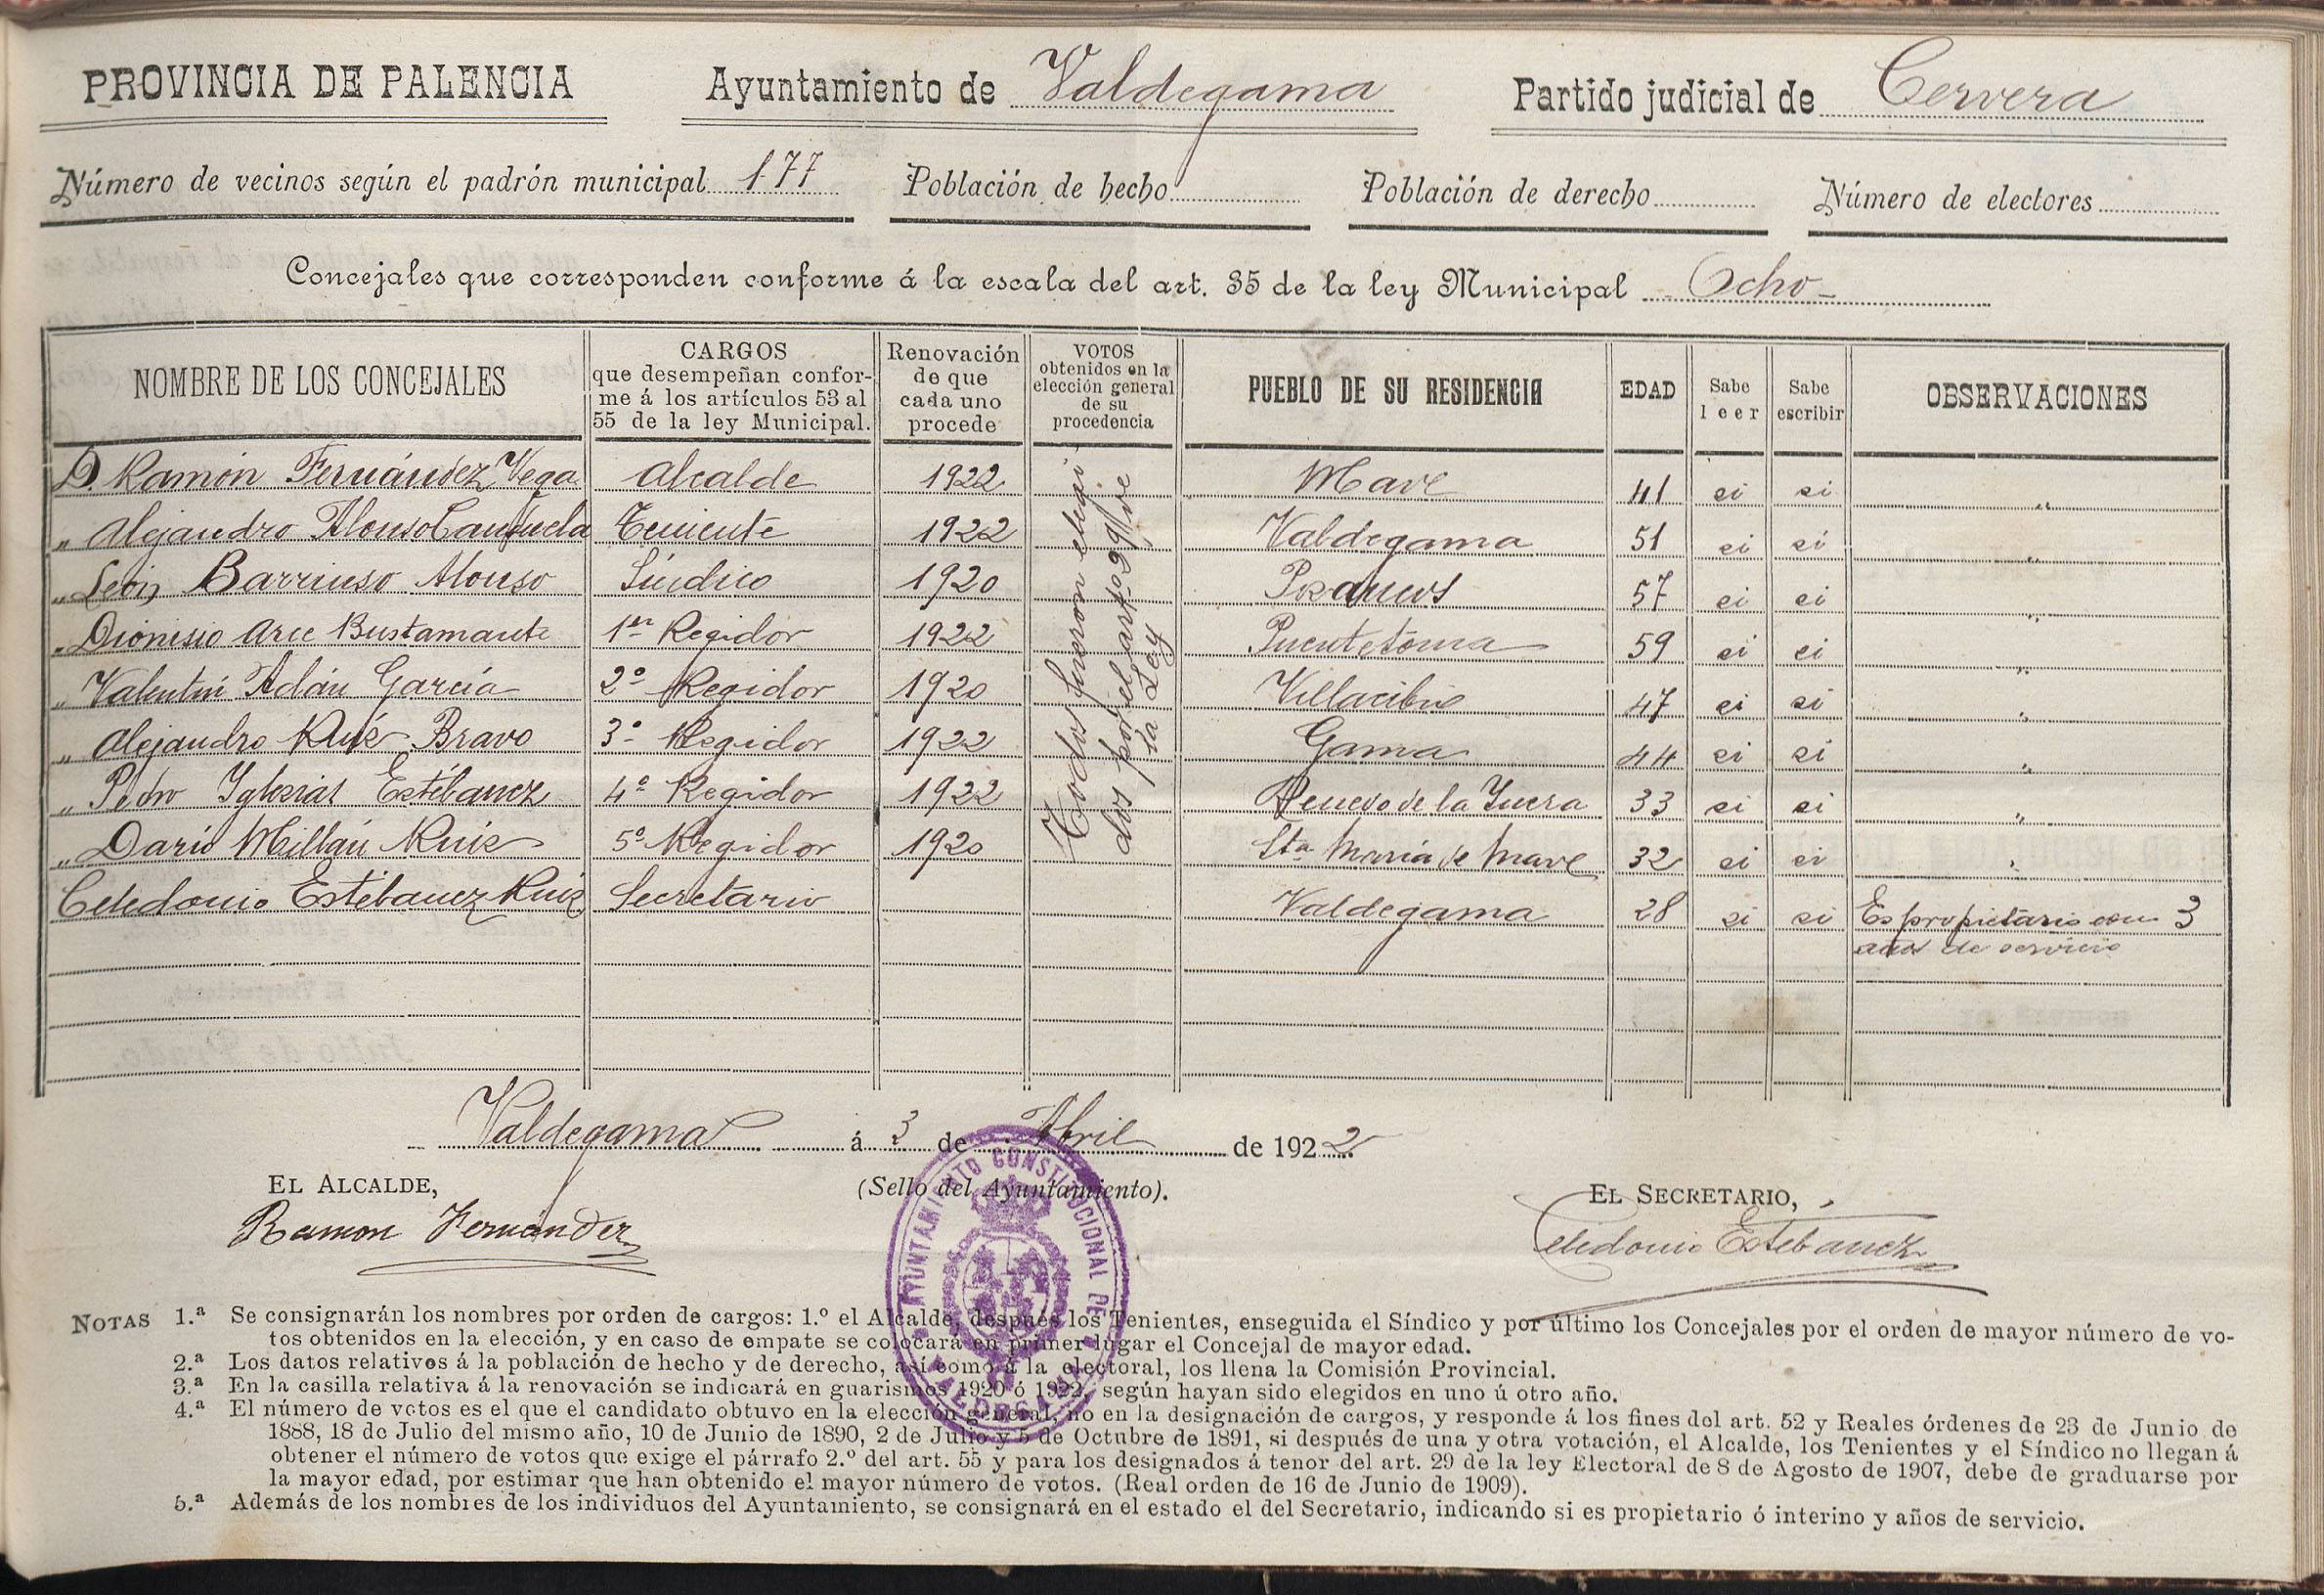 PROVINCIA DE PALENCIA Ayuntamiento de Valdegama Partido judicial de Cervera
Número de vecinos según el padrón municipal 177 Población de hecho Población de derecho Número de electores
Concejales que corresponden conforme á la escala del art. 35 de la ley Municipal Ocho
NOMBRE DE LOS CONCEJALES
CARGOS
que desempeñan confor-
me á los artículos 53 al
55 de la ley Municipal.
Renovación
de que
cada uno
procede
VOTOS
obtenidos en la
elección general
de su
procedencia
PUEBLO DE SU RESIDENCIA
EDAD
Sabe
leer
Sabe
escribir
OBSERVACIONES
D. Ramón Fernández Vega Alcalde 1922 Mave 41 si si "
" Alejandro Alonso Teniente 1922 Valdegama 51 si si "
" León Barriuso Alonso Síndico 1920 57 si si "
" Dionisio Arce Bustamante 1er Regidor 1922 Puentetoma 59 si si "
" Valentín Adán García 2º Regidor 1920 Villacibio 47 si si "
" Alejandro Ruiz Bravo 3º Regidor 1922 Gama 44 si si "
" Pedro Iglesias Estébanez 4º Regidor 1922 Renedo de la Inera 33 si si "
" Darío Millán Ruiz 5º Regidor 1920 Sta María de Mave 32 si si "
Celedonio Estébanez Ruiz Secretario Valdegama 28 si si Es propietario con 3
años de servicio
Todos fueron elegi-
dos por el artº 29 de
la Ley
Valdegama á 3 de Abril de 1922
EL ALCALDE,
(Sello del Ayuntamiento).
EL SECRETARIO,
Ramon Fernández
Celedonio Estébanez
AYUNTAMIENTO CONSTITUCIONAL DE VALDEGAMA
NOTAS 1.ª Se consignarán los nombres por orden de cargos: 1.º el Alcalde, después los Tenientes, enseguida el Síndico y por último los Concejales por el orden de mayor número de vo-
tos obtenidos en la elección, y en caso de empate se colocará en primer lugar el Concejal de mayor edad.
2.ª Los datos relativos á la población de hecho y de derecho, así como á la electoral, los llena la Comisión Provincial.
3.ª En la casilla relativa á la renovación se indicará en guarismos 1920 ó 1922, según hayan sido elegidos en uno ú otro año.
4.ª El número de votos es el que el candidato obtuvo en la elección general, no en la designación de cargos, y responde á los fines del art. 52 y Reales órdenes de 23 de Junio de
1888, 18 de Julio del mismo año, 10 de Junio de 1890, 2 de Julio y 5 de Octubre de 1891, si después de una y otra votación, el Alcalde, los Tenientes y el Síndico no llegan á
obtener el número de votos que exige el párrafo 2.º del art. 55 y para los designados á tenor del art. 29 de la ley Electoral de 8 de Agosto de 1907, debe de graduarse por
la mayor edad, por estimar que han obtenido el mayor número de votos. (Real orden de 16 de Junio de 1909).
5.ª Además de los nombres de los individuos del Ayuntamiento, se consignará en el estado el del Secretario, indicando si es propietario ó interino y años de servicio.